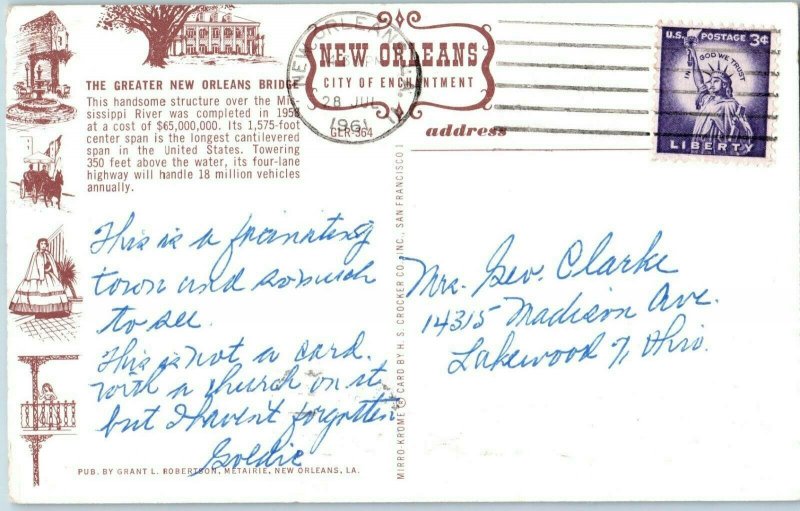 NEW ORLEANS
CITY OF ENCHANTMENT
GLR-364
NEW ORLEANS
28 JUL
1961
U.S. POSTAGE 3¢
IN GOD WE TRUST
LIBERTY
THE GREATER NEW ORLEANS BRIDGE
This handsome structure over the Mis-
sissippi River was completed in 1958
at a cost of $65,000,000. Its 1,575-foot
center span is the longest cantilevered
span in the United States. Towering
350 feet above the water, its four-lane
highway will handle 18 million vehicles
annually.
address
This is a fascinating
town and so much
to see.
This is not a card
with a church on it,
but I haven't forgotten
Goldie
Mrs. Geo. Clarke
14315 Madison Ave.
Lakewood 7, Ohio.
MIRRO-KROME ® CARD BY H. S. CROCKER CO., INC., SAN FRANCISCO 1
PUB. BY GRANT L. ROBERTSON, METAIRIE, NEW ORLEANS, LA.